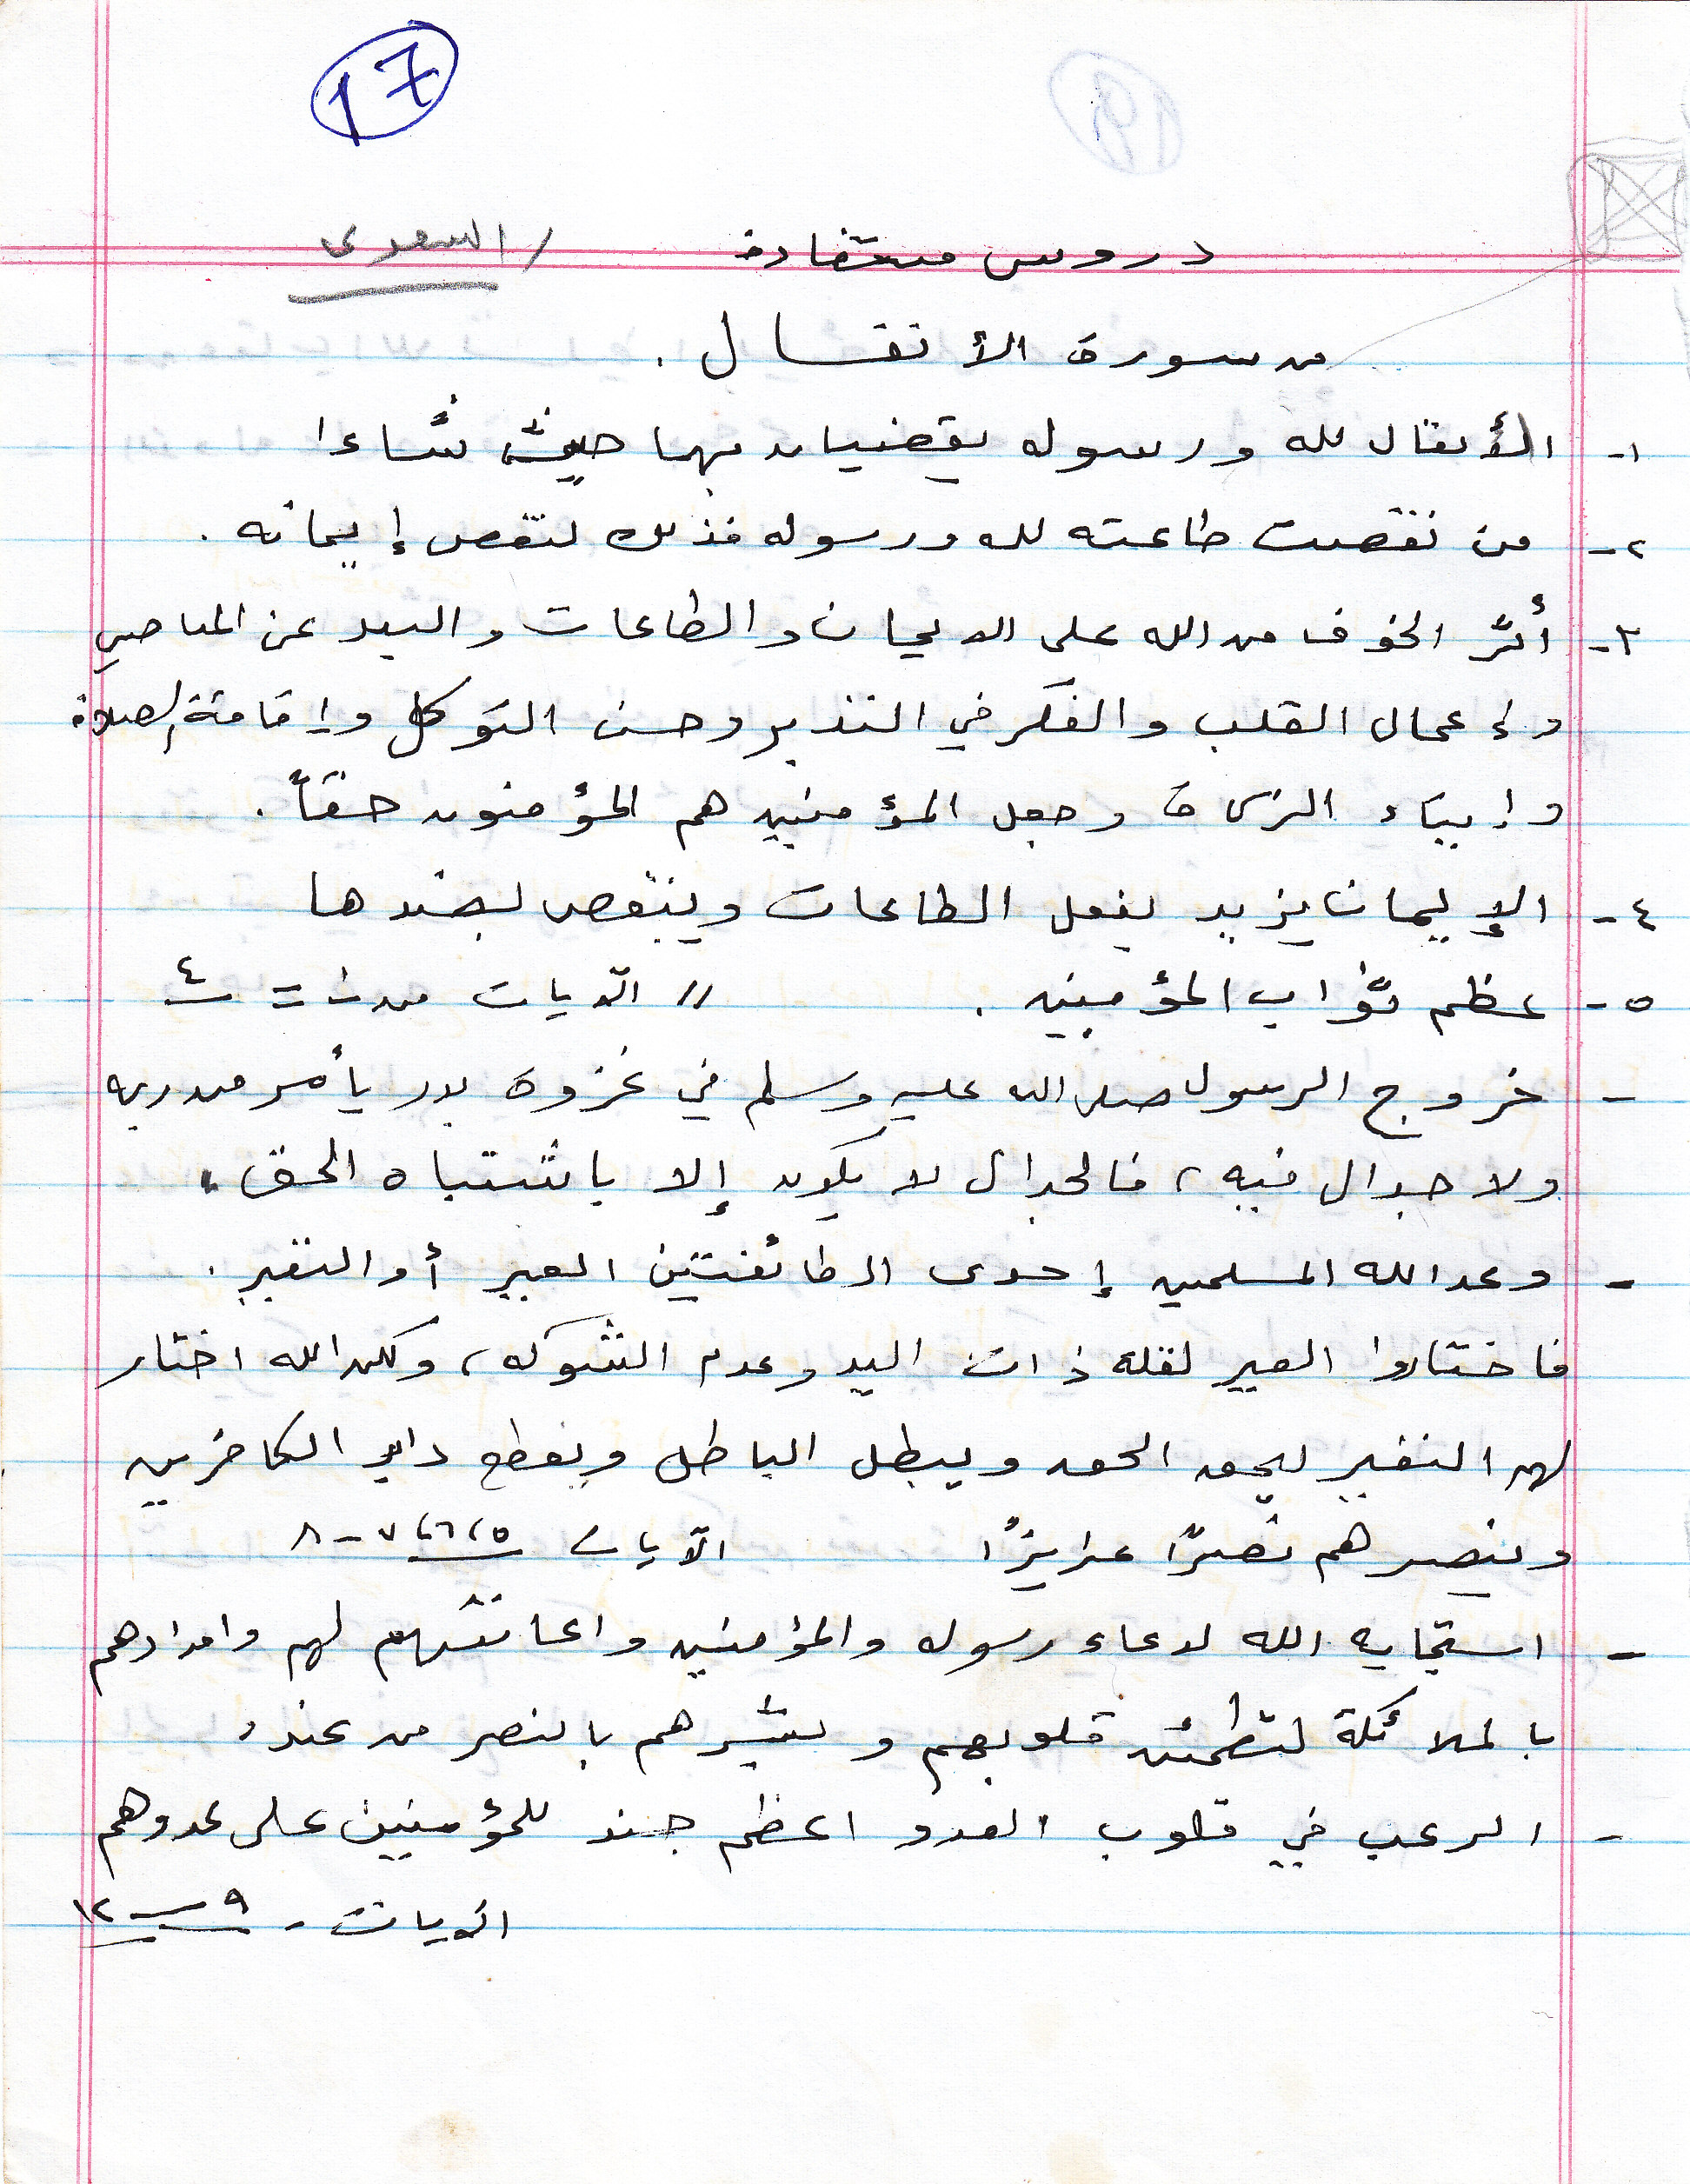 17
دروس مستفادة / السعدى
من سورة الأنفال .
١- الأنفال لله ورسوله يقضيان بهما حيث شاءا
٢- من نقصت طاعته لله ورسوله فذلك لنقص إيمانه .
٣- أثر الخوف من الله على الايمان والطاعات والبعد عن المعاصي
وإعمال القلب والفكر في التدبر وحسن التوكل وإقامة الصلاة
وإيتاء الزكاة وجعل المؤمنين هم المؤمنون حقاً .
٤- الإيمان يزيد بفعل الطاعات وينقص بضدها
٥- عظم ثواب المؤمنين . // الآيات من ١ = ٤
- خروج الرسول صلى الله عليه وسلم في غزوة بدر بأمر من ربه
ولا جدال فيه ، فالجدال لا يكون إلا باشتباه الحق .
- وعد الله المسلمين إحدى الطائفتين العير أو النفير .
فاختاروا العير لقلة ذات اليد وعدم الشوكه ، ولكن الله اختار
لهم النفير ليحق الحق ويبطل الباطل ويقطع دابر الكافرين
وينصرهم نصرًا عزيزًا الآيات ٥،٦،٧-٨
- استجابه الله لدعاء رسوله والمؤمنين واعانتهم لهم وامدادهم
بالملائكة لتطمئن قلوبهم وبشرهم بالنصر من عنده
- الرعب في قلوب العدو اعظم جند للمؤمنين على عدوهم
الايات - ٩ - ١٢